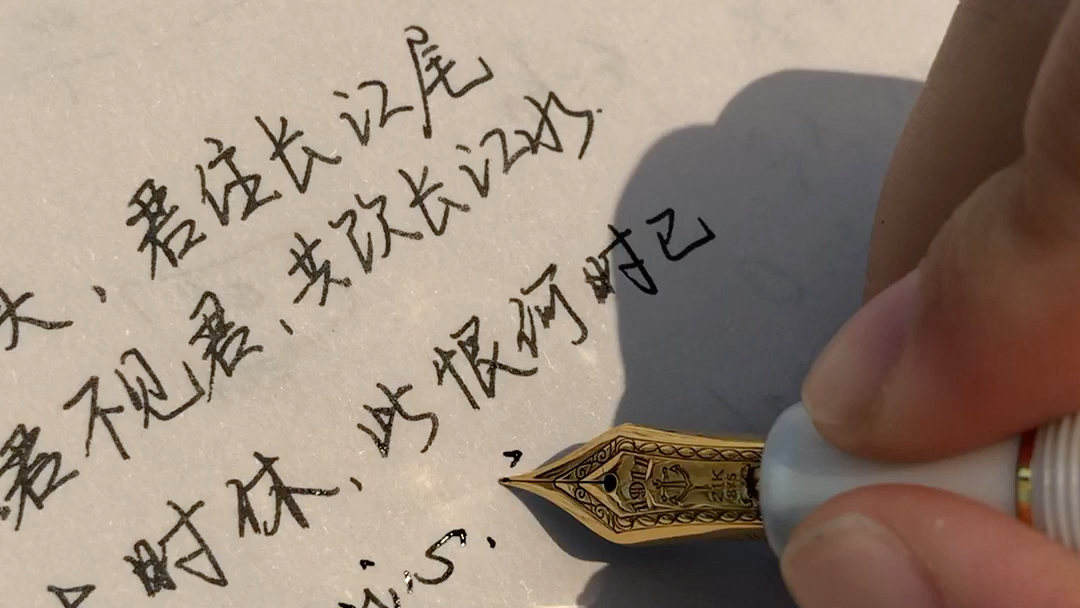 头、君住长江尾
君不见君、共饮长江水
时休、此恨何时已
is.
1911
21K
875